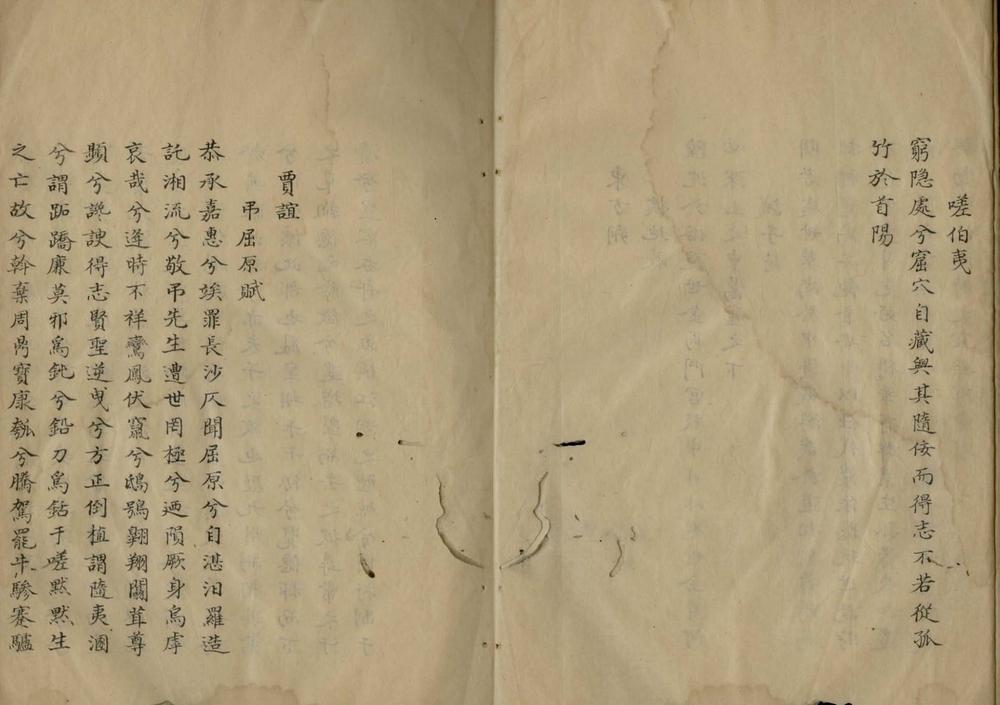 嗟伯夷
窮隐處兮窟穴自藏與其隨佞而得志不若從孤
竹於首陽
賈誼
弔屈原賦
恭承嘉惠兮竢罪長沙仄聞屈原兮自湛汨羅造
託湘流兮敬弔先生遭世罔極兮迺隕厥身烏虖
哀哉兮逢時不祥鸞鳳伏竄兮鴟鴞翱翔闒茸尊
顯兮讒諛得志賢聖逆曳兮方正倒植謂隨夷溷
兮謂跖蹻廉莫邪為鈍兮鉛刀為銛于嗟默默生
之亡故兮斡棄周鼎寶康瓠兮騰駕罷牛驂蹇驢